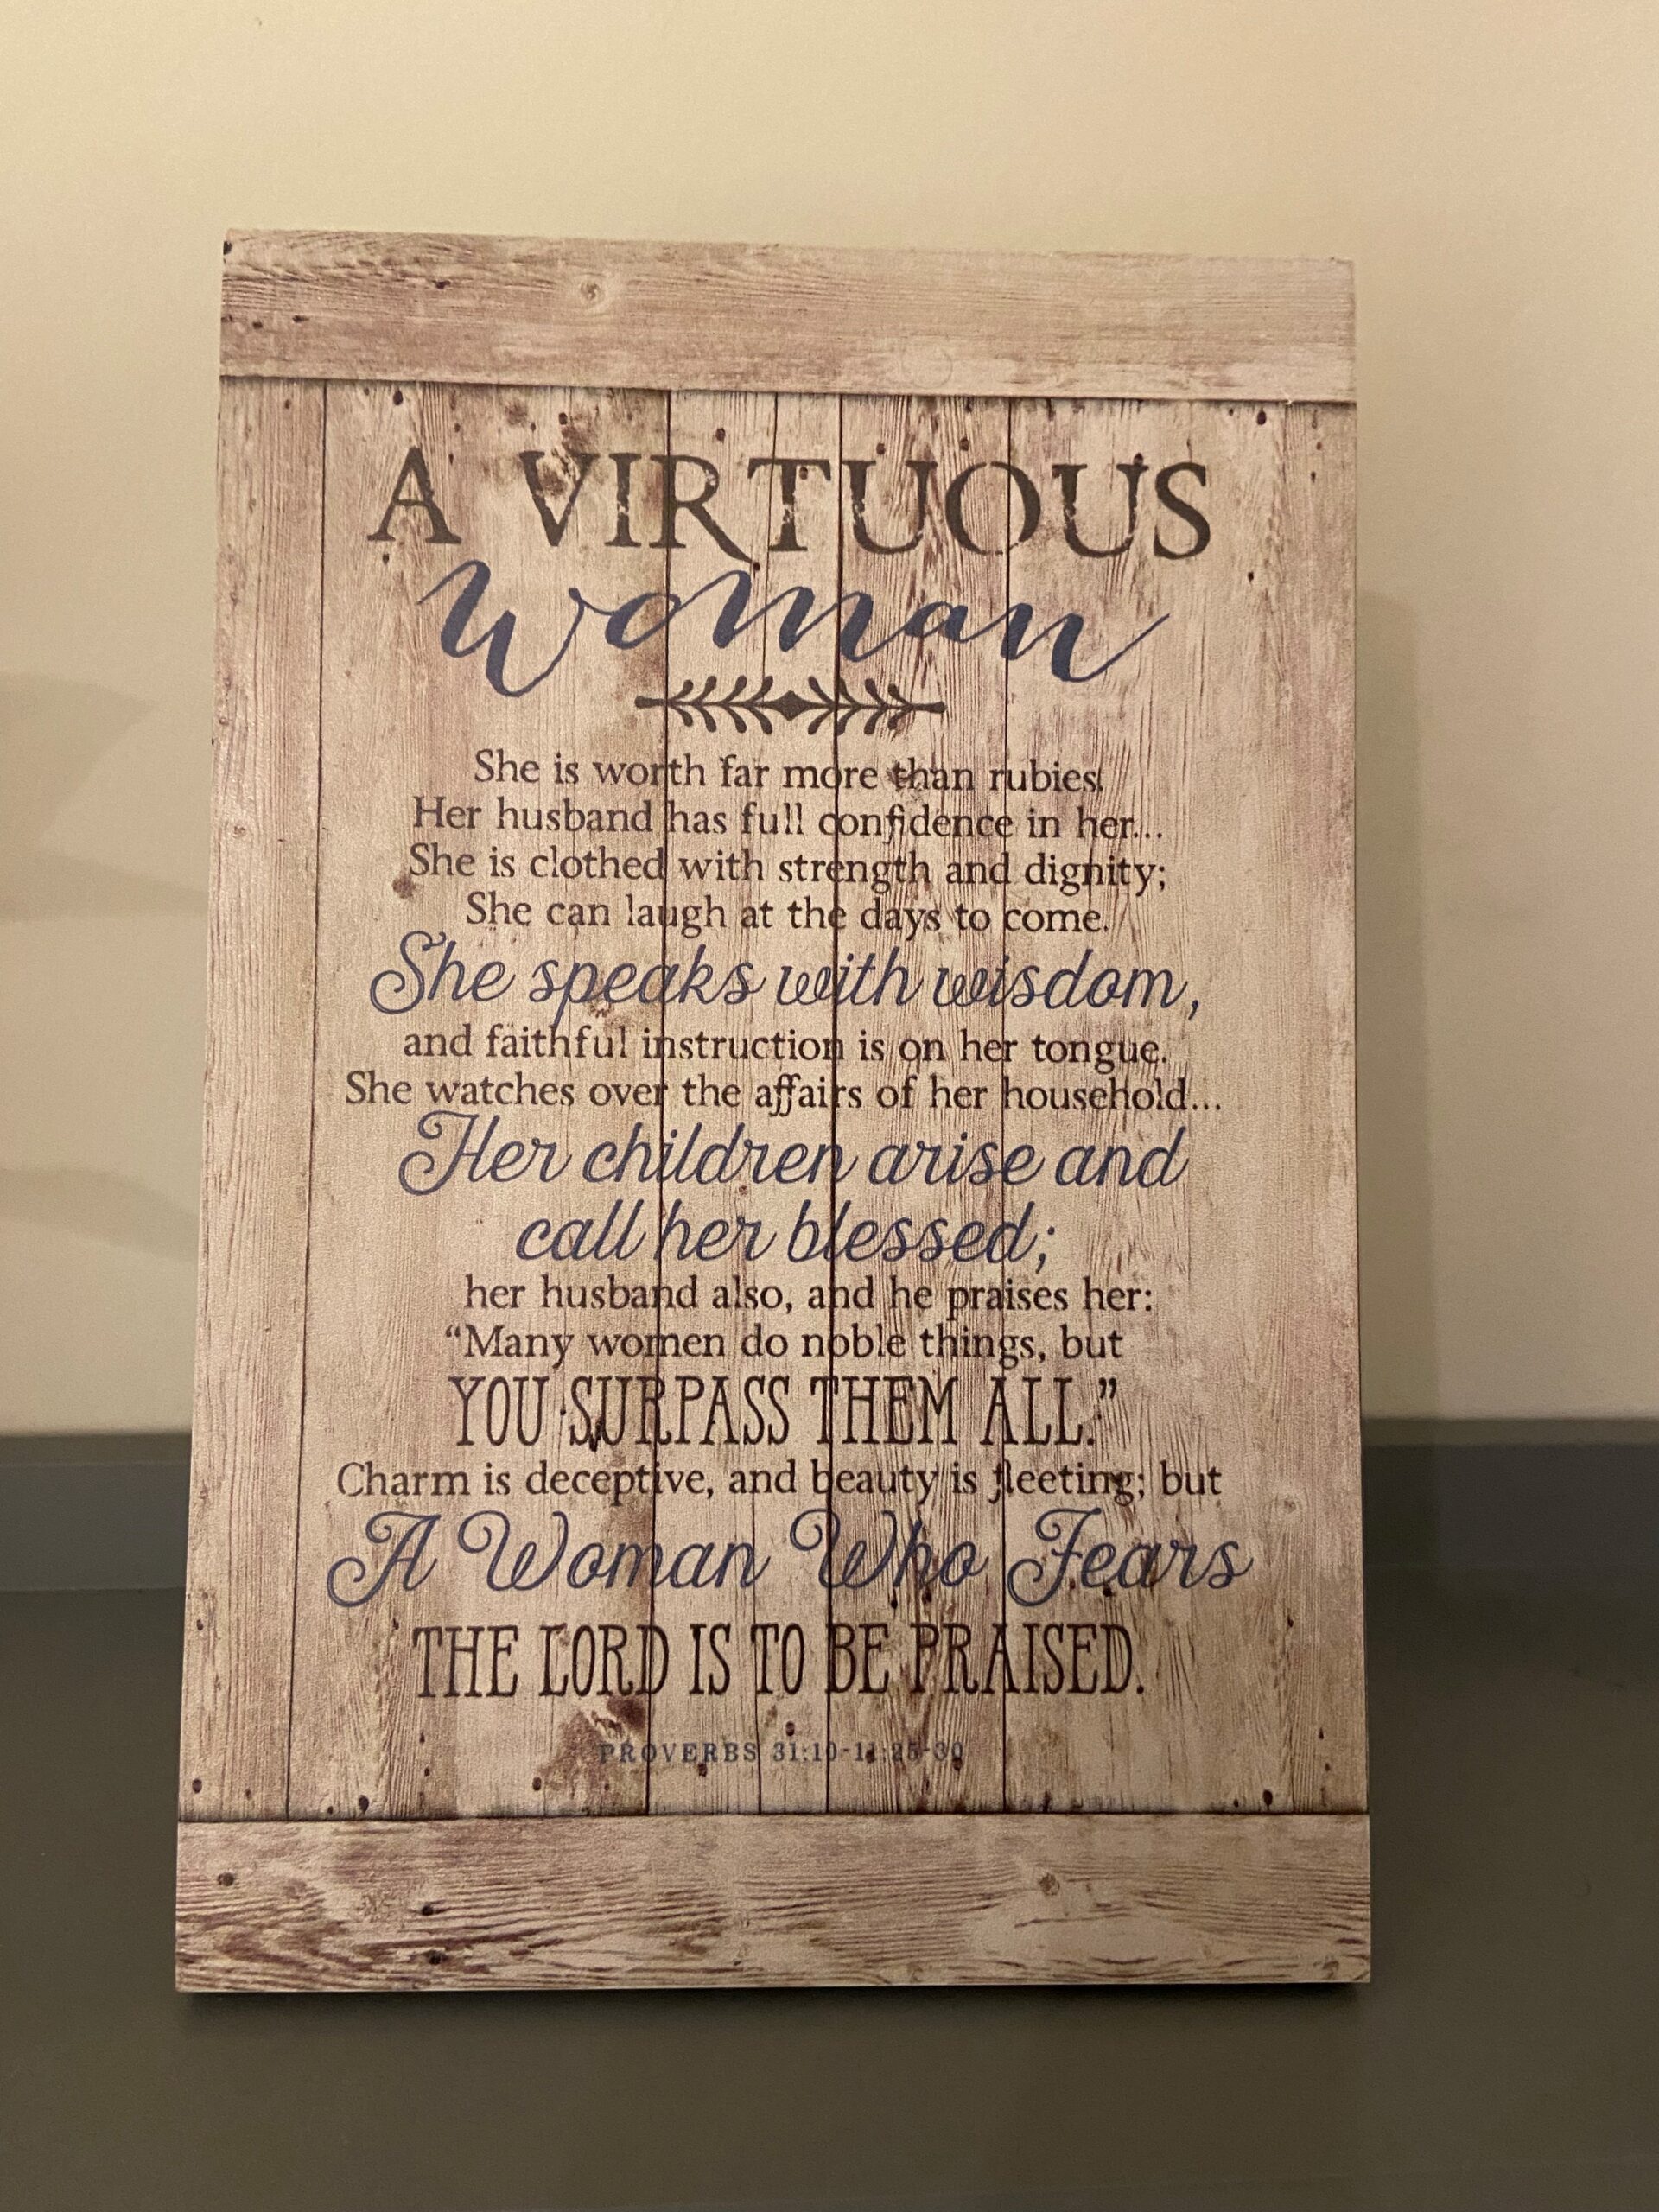 A VIRTUOUS
Woman
She is worth far more than rubies.
Her husband has full confidence in her...
She is clothed with strength and dignity;
She can laugh at the days to come.
She speaks with wisdom,
and faithful instruction is on her tongue.
She watches over the affairs of her household...
Her children arise and
call her blessed;
her husband also, and he praises her:
“Many women do noble things, but
YOU SURPASS THEM ALL.”
Charm is deceptive, and beauty is fleeting; but
A Woman Who Fears
THE LORD IS TO BE PRAISED.
PROVERBS 31:10-11;25-30